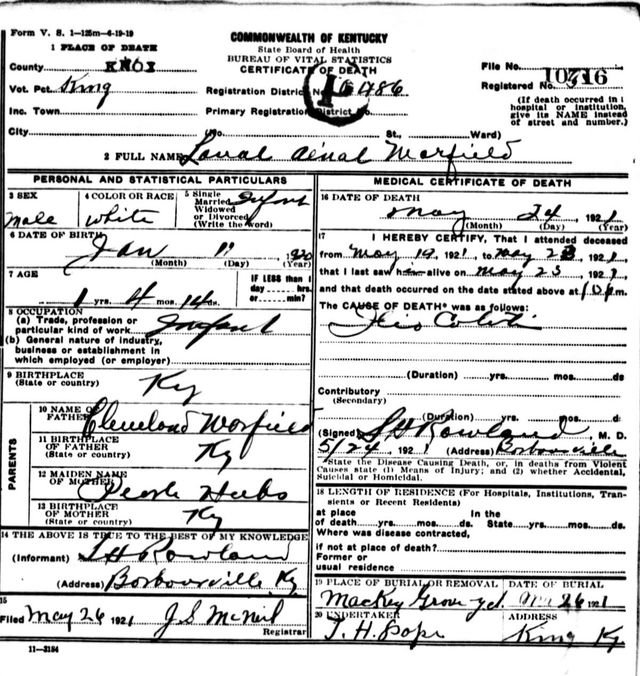 Form V. S. 1-125m-4-19-19
1 PLACE OF DEATH
COMMONWEALTH OF KENTUCKY
State Board of Health
BUREAU OF VITAL STATISTICS
CERTIFICATE OF DEATH
County KNOX
File No. 10716
Vot. Pct. King
Registration District No. 486
Registered No.
Inc. Town
Primary Registration District No.
(If death occurred in a hospital or institution, give its NAME instead of street and number.)
City (No. St., Ward)
2 FULL NAME Worfield
PERSONAL AND STATISTICAL PARTICULARS
3 SEX
Male
4 COLOR OR RACE
White
5 Single
Married
Widowed
or Divorced
(Write the word)
Infant
6 DATE OF BIRTH
Jan 1920
(Month) (Day) (Year)
7 AGE
1 yrs. 4 mos. 14 ds.
IF LESS than 1
day hrs.
or min.?
8 OCCUPATION
(a) Trade, profession or
particular kind of work Infant
(b) General nature of industry,
business or establishment in
which employed (or employer)
9 BIRTHPLACE
(State or country) Ky
PARENTS
10 NAME OF
FATHER Cleveland Worfield
11 BIRTHPLACE
OF FATHER
(State or country) Ky
12 MAIDEN NAME
OF MOTHER
13 BIRTHPLACE
OF MOTHER
(State or country) Ky
14 THE ABOVE IS TRUE TO THE BEST OF MY KNOWLEDGE
(Informant) Rowland
(Address) Borbourville, Ky
15
Filed May 26 1921 J. S. McNeil
Registrar
11-3184
MEDICAL CERTIFICATE OF DEATH
16 DATE OF DEATH
May 24, 1921
(Month) (Day) (Year)
17
I HEREBY CERTIFY, That I attended deceased
from May 19, 1921, to May 23, 1921,
that I last saw h alive on May 23, 1921,
and that death occurred on the date stated above at m.
The CAUSE OF DEATH* was as follows:
(Duration) yrs. mos. ds
Contributory
(Secondary)
(Duration) yrs. mos. d:
(Signed) Rowland, M. D.
5/24, 1921 (Address) Borbourville
*State the Disease Causing Death, or, in deaths from Violent
Causes state (1) Means of Injury; and (2) whether Accidental,
Suicidal or Homicidal.
18 LENGTH OF RESIDENCE (For Hospitals, Institutions, Tran-
sients or Recent Residents)
at place In the
of death yrs. mos. ds. State yrs. mos. ds.
Where was disease contracted,
if not at place of death?
Former or
usual residence
19 PLACE OF BURIAL OR REMOVAL DATE OF BURIAL
Mackey Grove yd. 26 1921
20 UNDERTAKER ADDRESS
T. H. Pope King Ky